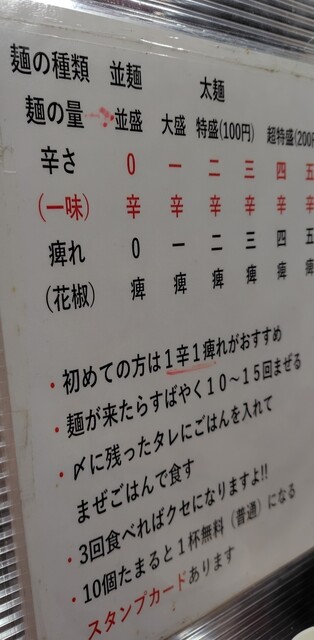 麺の種類 並麺 太麺
麺の量 並盛 大盛 特盛(100円) 超特盛(200円
辛さ 0 一 二 三 四 五
(一味) 辛 辛 辛 辛 辛 辛
痺れ 0 一 二 三 四 五
(花椒) 痺 痺 痺 痺 痺 痺
・初めての方は1辛1痺れがおすすめ
・麺が来たらすばやく10〜15回まぜる
・〆に残ったタレにごはんを入れて
まぜごはんで食す
・3回食べればクセになりますよ!!
・10個たまると1杯無料(普通)になる
スタンプカードあります